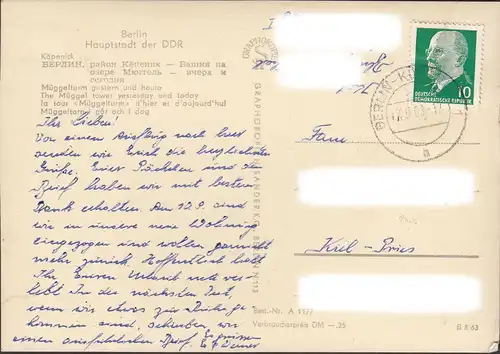 Berlin
Hauptstadt der DDR
Köpenick
БЕРЛИН, район Кёпеник — Башня на
озере Мюггель — вчера и
сегодня
Müggelturm gestern und heute
The Müggel tower yesterday and today
La tour «Müggelturm» d'hier et d'aujourd'hui
Müggeltorn i går och i dag
Ihr Lieben!
Von einem Ausflug nach hier
senden wir Euch die herzlichsten
Grüße. Euer Päckchen und den
Brief haben wir mit bestem
Dank erhalten. Am 12.9. sind
wir in unsere neue Wohnung
eingezogen und wollen garnicht
mehr zurück. Hoffentlich habt
Ihr Euren Urlaub nett ver-
lebt. In der nächsten Zeit,
wenn wir etwas zur Ruhe ge-
kommen sind, schreiben wir
einen ausführlichen Brief. Es grüssen
DEUTSCHE
DEMOKRATISCHE REPUBLIK
10
BERLIN-KÖ
a
Fam.
Kiel-Pries
Best.-Nr. A 1177
Verbraucherpreis DM —,25
B 8 63